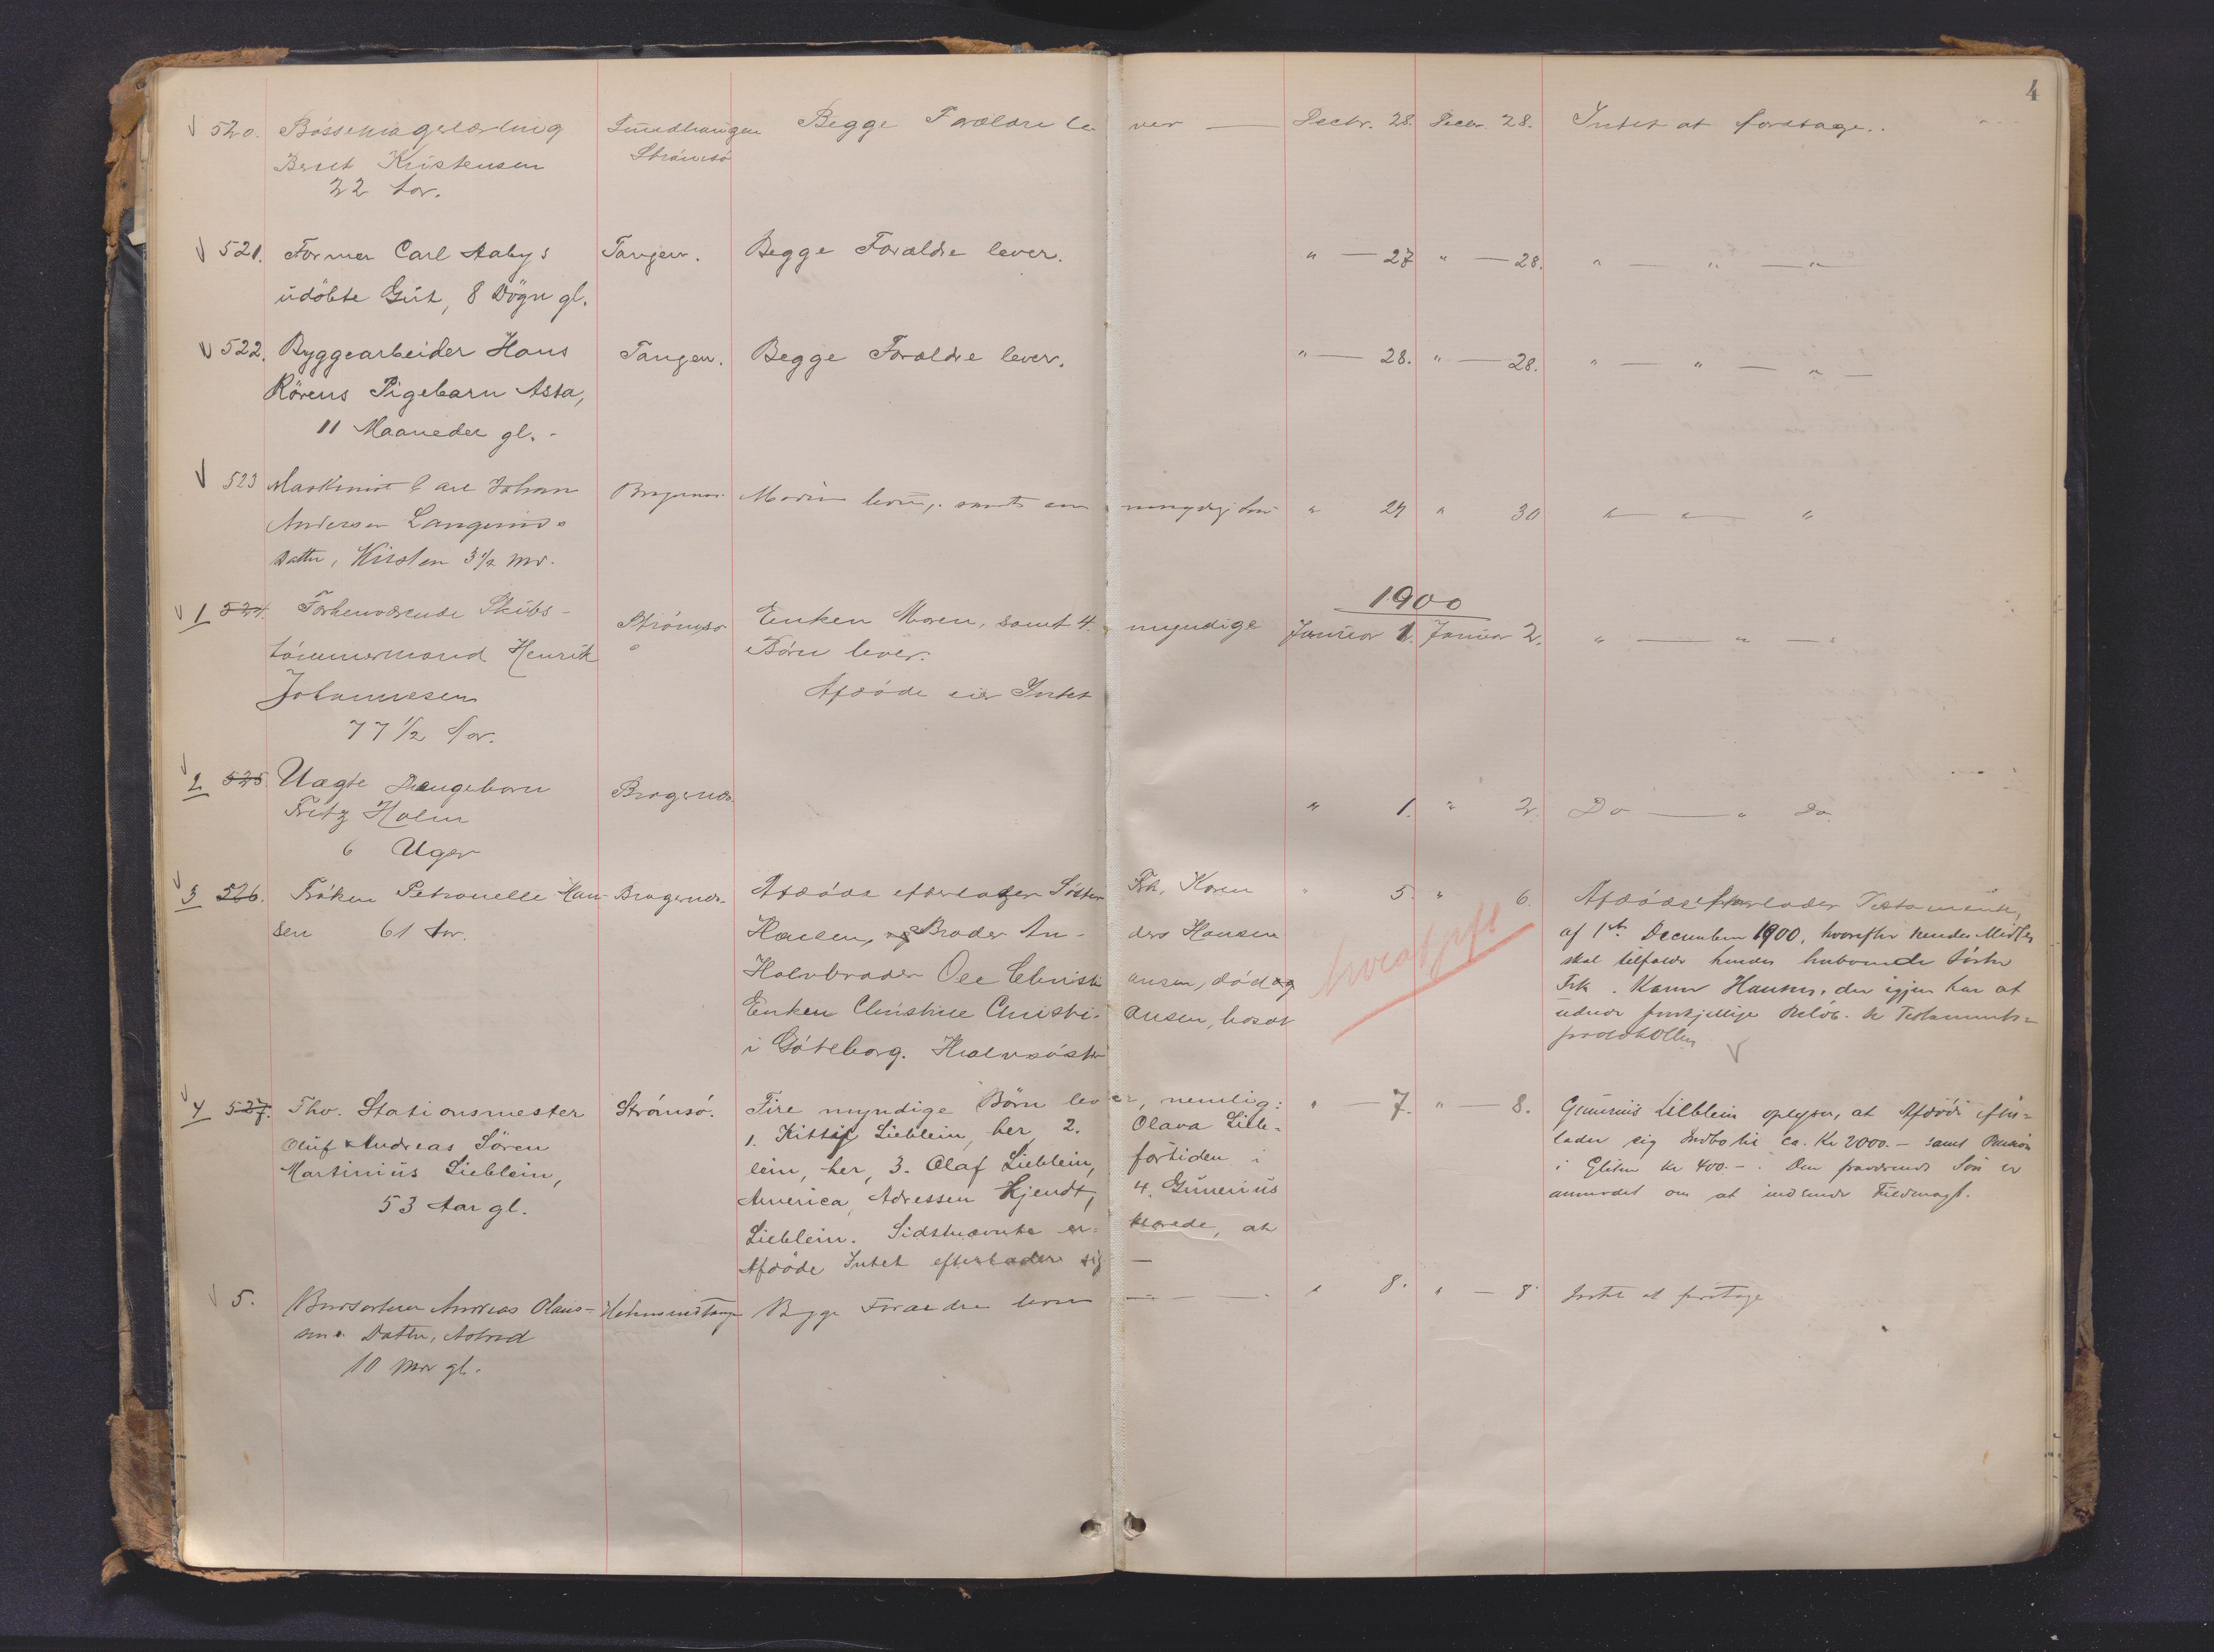 4
520. Bössemagerlærling Smedhaugen Begge Forældre lever — Decbr. 28. Decbr. 28. Intet at foretage.
Bernt Kristensen Strömsö
22 Aar.
521. Former Carl Aabys Tangen. Begge Forældre lever. " — 27 " — 28. " — " — "
udöbte Gut, 8 Dögn gl.
522. Byggearbeider Hans Tangen. Begge Forældre lever. " — 28. " — 28. " — " — " —
Rörens Pigebarn Asta,
11 Maaneder gl. -
523 Maskinist Carl Johan Bragernes Moderen lever, samt en umyndig Søn " 29 " 30 " — " — "
Andersen Langeruds
Datter, Kirsten 3 1/2 Md.
1900
1 524. Forhenværende Skibs- Strömsö Enken Maren, samt 4 myndige Januar 1. Januar 2. " — " — "
tömmermand Henrik Börn lever.
Johannesen Afdöde eier Intet
77 1/2 Aar.
2 525 Uægte Drengebarn Bragernes " 1. " 2. Do — " Do.
Fritz Holm
6 Uger
3 526. Fröken Petronelle Han- Bragernes. Afdöde efterlader Söster Frk. Karen " 5. " 6. Afdöde efterlader Testamente,
sen 61 Aar. Hansen, og Broder Anders Hansen af 1ste December 1900, hvorefter hendes Midler
Halvbroder Ole Christiansen, död og skal tilfalde hendes Söster
Enken Christine Christiansen, bosat Frk. Karen Hansen, der igjen har at
i Göteborg. Halvsöster udrede forskjellige Belöb. Se Testaments-
protokollen
4 527. Fhv. Stationsmester Strömsö. Fire myndige Börn lever, nemlig: " — 7. " — 8. Gunerius Lieblein oplyser, at Afdöde efter-
Oluf Andreas Sören 1. Kittif Lieblein, her, 2. Olava Lieb- lader sig Indbo til ca. Kr 2000.- samt Pension
Martinius Lieblein, lein, her, 3. Olaf Lieblein, fortiden i i Kr 400.-. Den fraværende Sön er
53 Aar gl. America, Adressen kjendt, 4. Gunerius anmodet om at indsende Fuldmagt.
Lieblein. Sidstnævnte er- klærede, at
Afdöde Intet efterlader sig —
5. Andreas Olaus- Holmsmedtangen Begge Forældre lever — — —. " 8. " — 8. Intet at foretage
sens Datter, Astrid
10 Mdr gl.